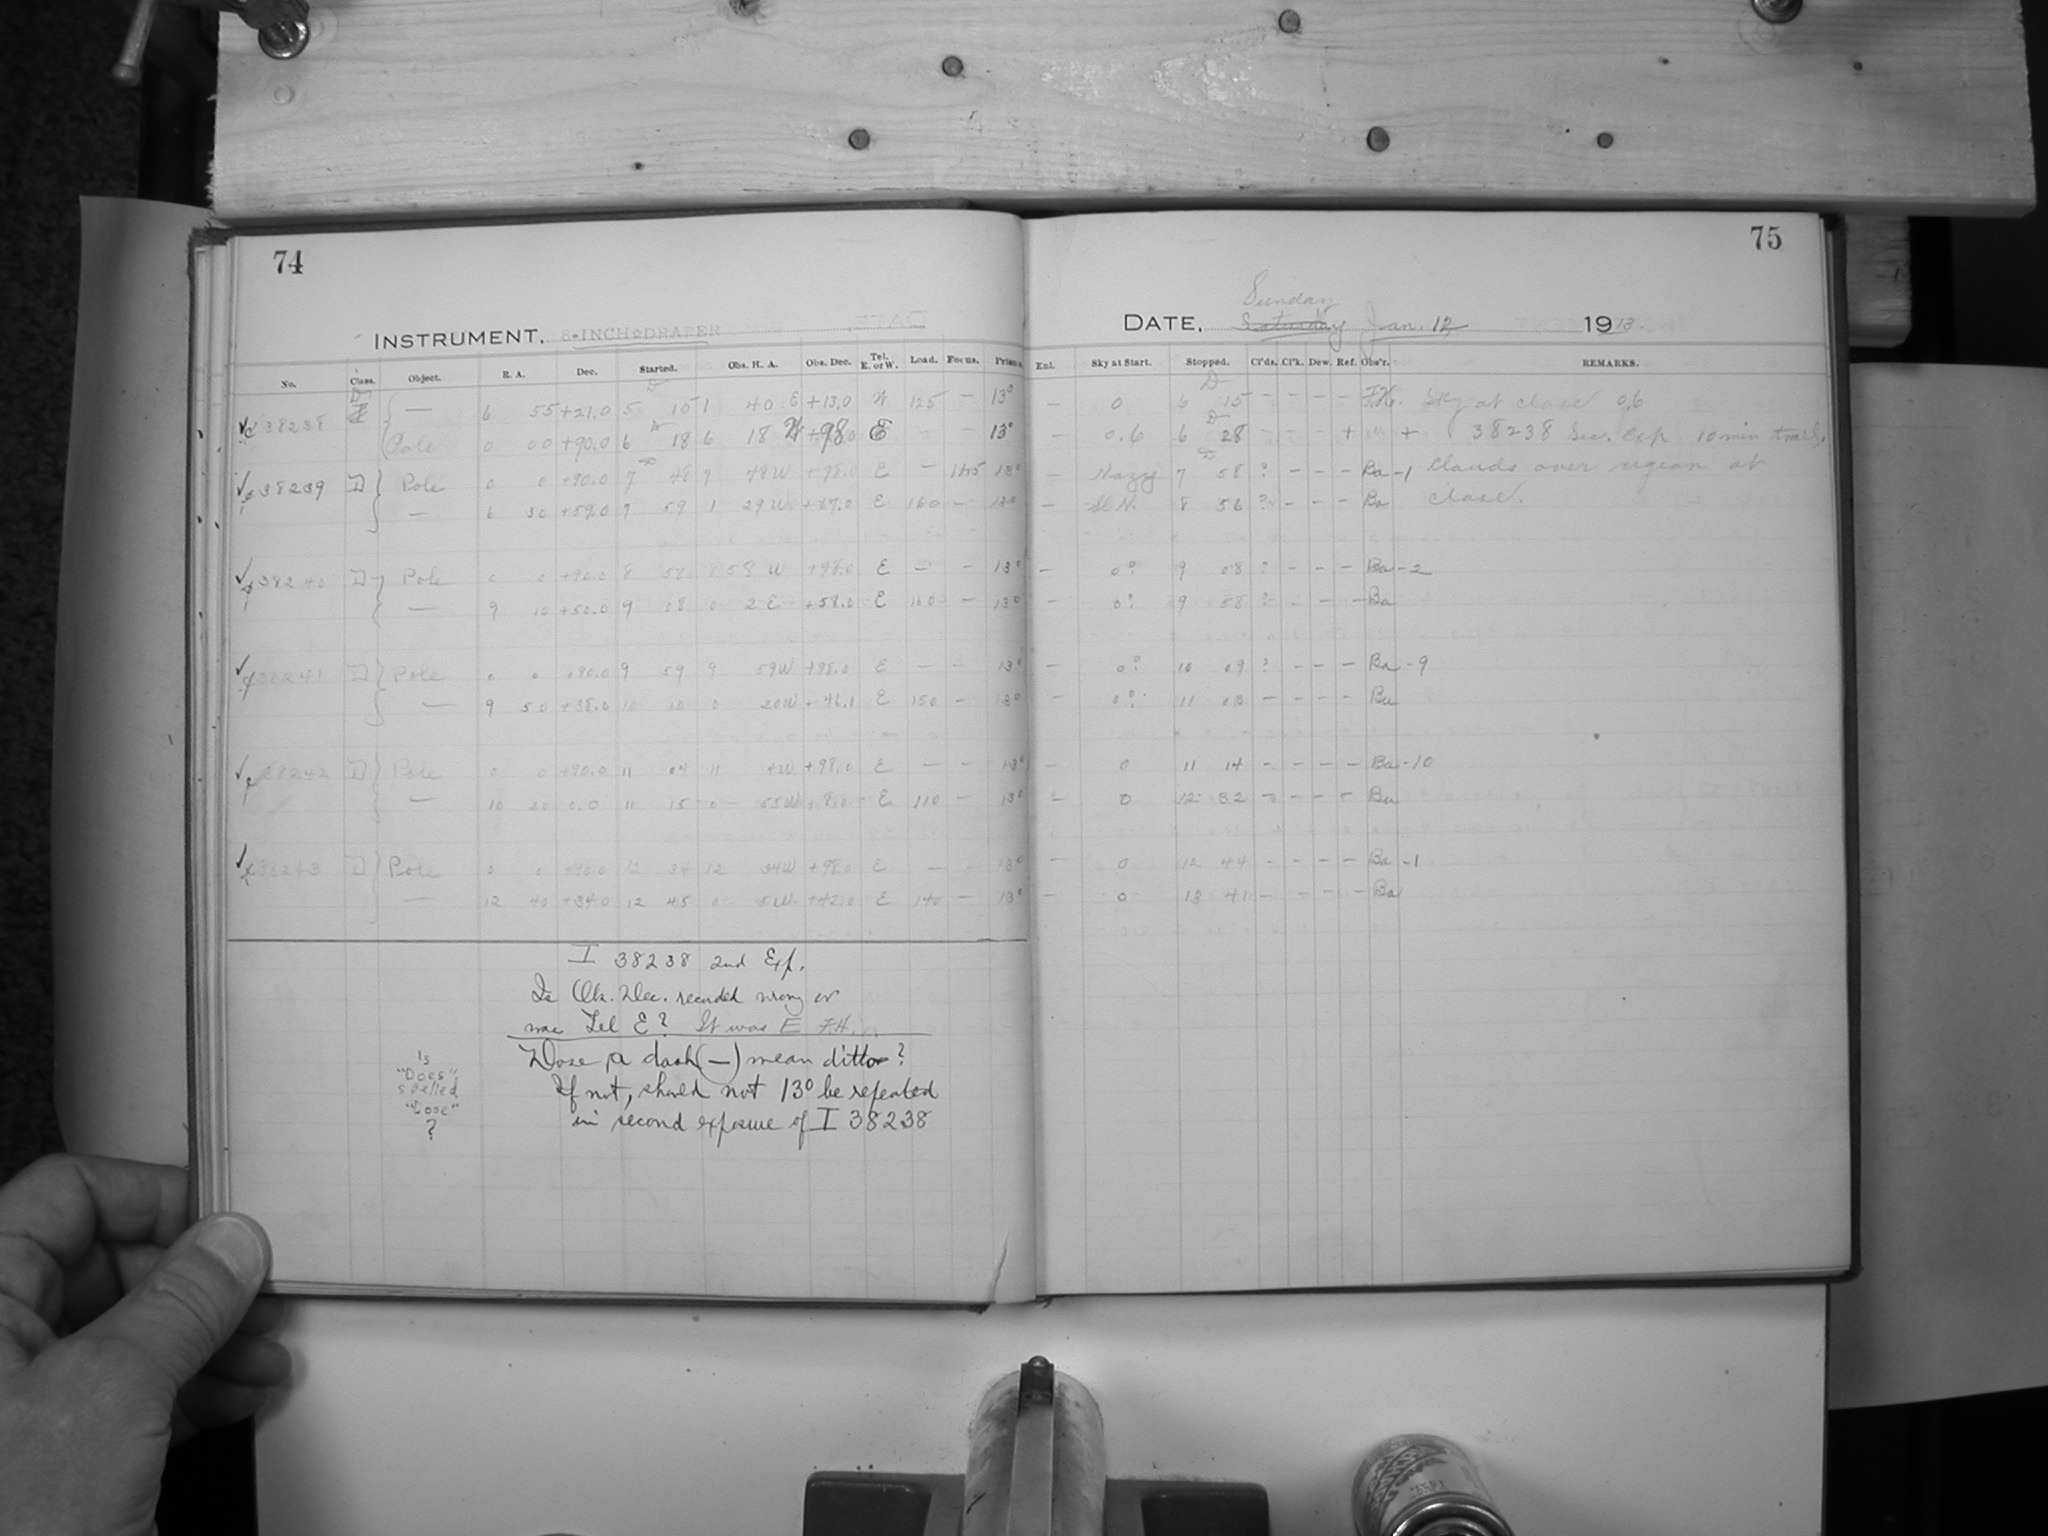 74
INSTRUMENT, 8-INCH DRAPER
No. Class. Object. R. A. Dec. Started. Obs. H. A. Obs. Dec. Tel. E. or W. Load. Focus. Prism
38238 — 6 55 +21.0 5 15 1 40 E +13.0 W 125 — 13°
Pole 0 00 +90.0 6 18 6 18 W +98.0 E — — 13°
38239 D Pole 0 0 +90.0 7 48 7 48 W +98.0 E — 13°
— 6 30 +59.0 7 59 1 29 W +67.0 E 160 — 13°
38240 D Pole 0 0 +90.0 8 58 8 58 W +98.0 E — — 13°
— 9 10 +50.0 9 08 0 2 E +58.0 E 160 — 13°
38241 D Pole 0 0 +90.0 9 59 9 59 W +98.0 E — — 13°
— 9 50 +38.0 10 10 0 20 W +46.0 E 150 — 13°
38242 D Pole 0 0 +90.0 11 04 11 4 W +98.0 E — — 13°
— 10 20 0.0 11 15 0 55 W +8.0 E 110 — 13°
38243 D Pole 0 0 +90.0 12 34 12 34 W +98.0 E — — 13°
— 12 40 +34.0 12 45 0 5 W +42.0 E 140 — 13°
I 38238 2nd Exp.
Is Ob. Dec. recorded wrong or
was Tel E? It was E F.H.
Dose a dash (—) mean ditto?
If not, should not 13° be repeated
in second exposure of I 38238
Is
"Does"
spelled
"Dose"
?
75
Sunday
DATE, Saturday Jan. 12 1913.
Enl. Sky at Start. Stopped. Cl'ds. Cl'k. Dew. Ref. Obs'r. REMARKS.
0 6 15 — — — — F.H. Sky at close 0.6
— 0.6 6 28 — — — + " + 38238 Sec. Exp. 10 min trails.
— Hazy 7 58 ? — — — Ba -1 Clouds over region at
— 8 56 ? — — — Ba close.
— 0? 9 08 ? — — — Ba -2
— 0? 9 58 ? — — — Ba
— 0? 10 09 ? — — — Ba -9
— 0? 11 03 — — — — Ba
— 0 11 14 — — — — Ba -10
— 0 12 32 — — — — Ba
— 0 12 44 — — — — Ba -1
— 0 13 41 — — — — Ba